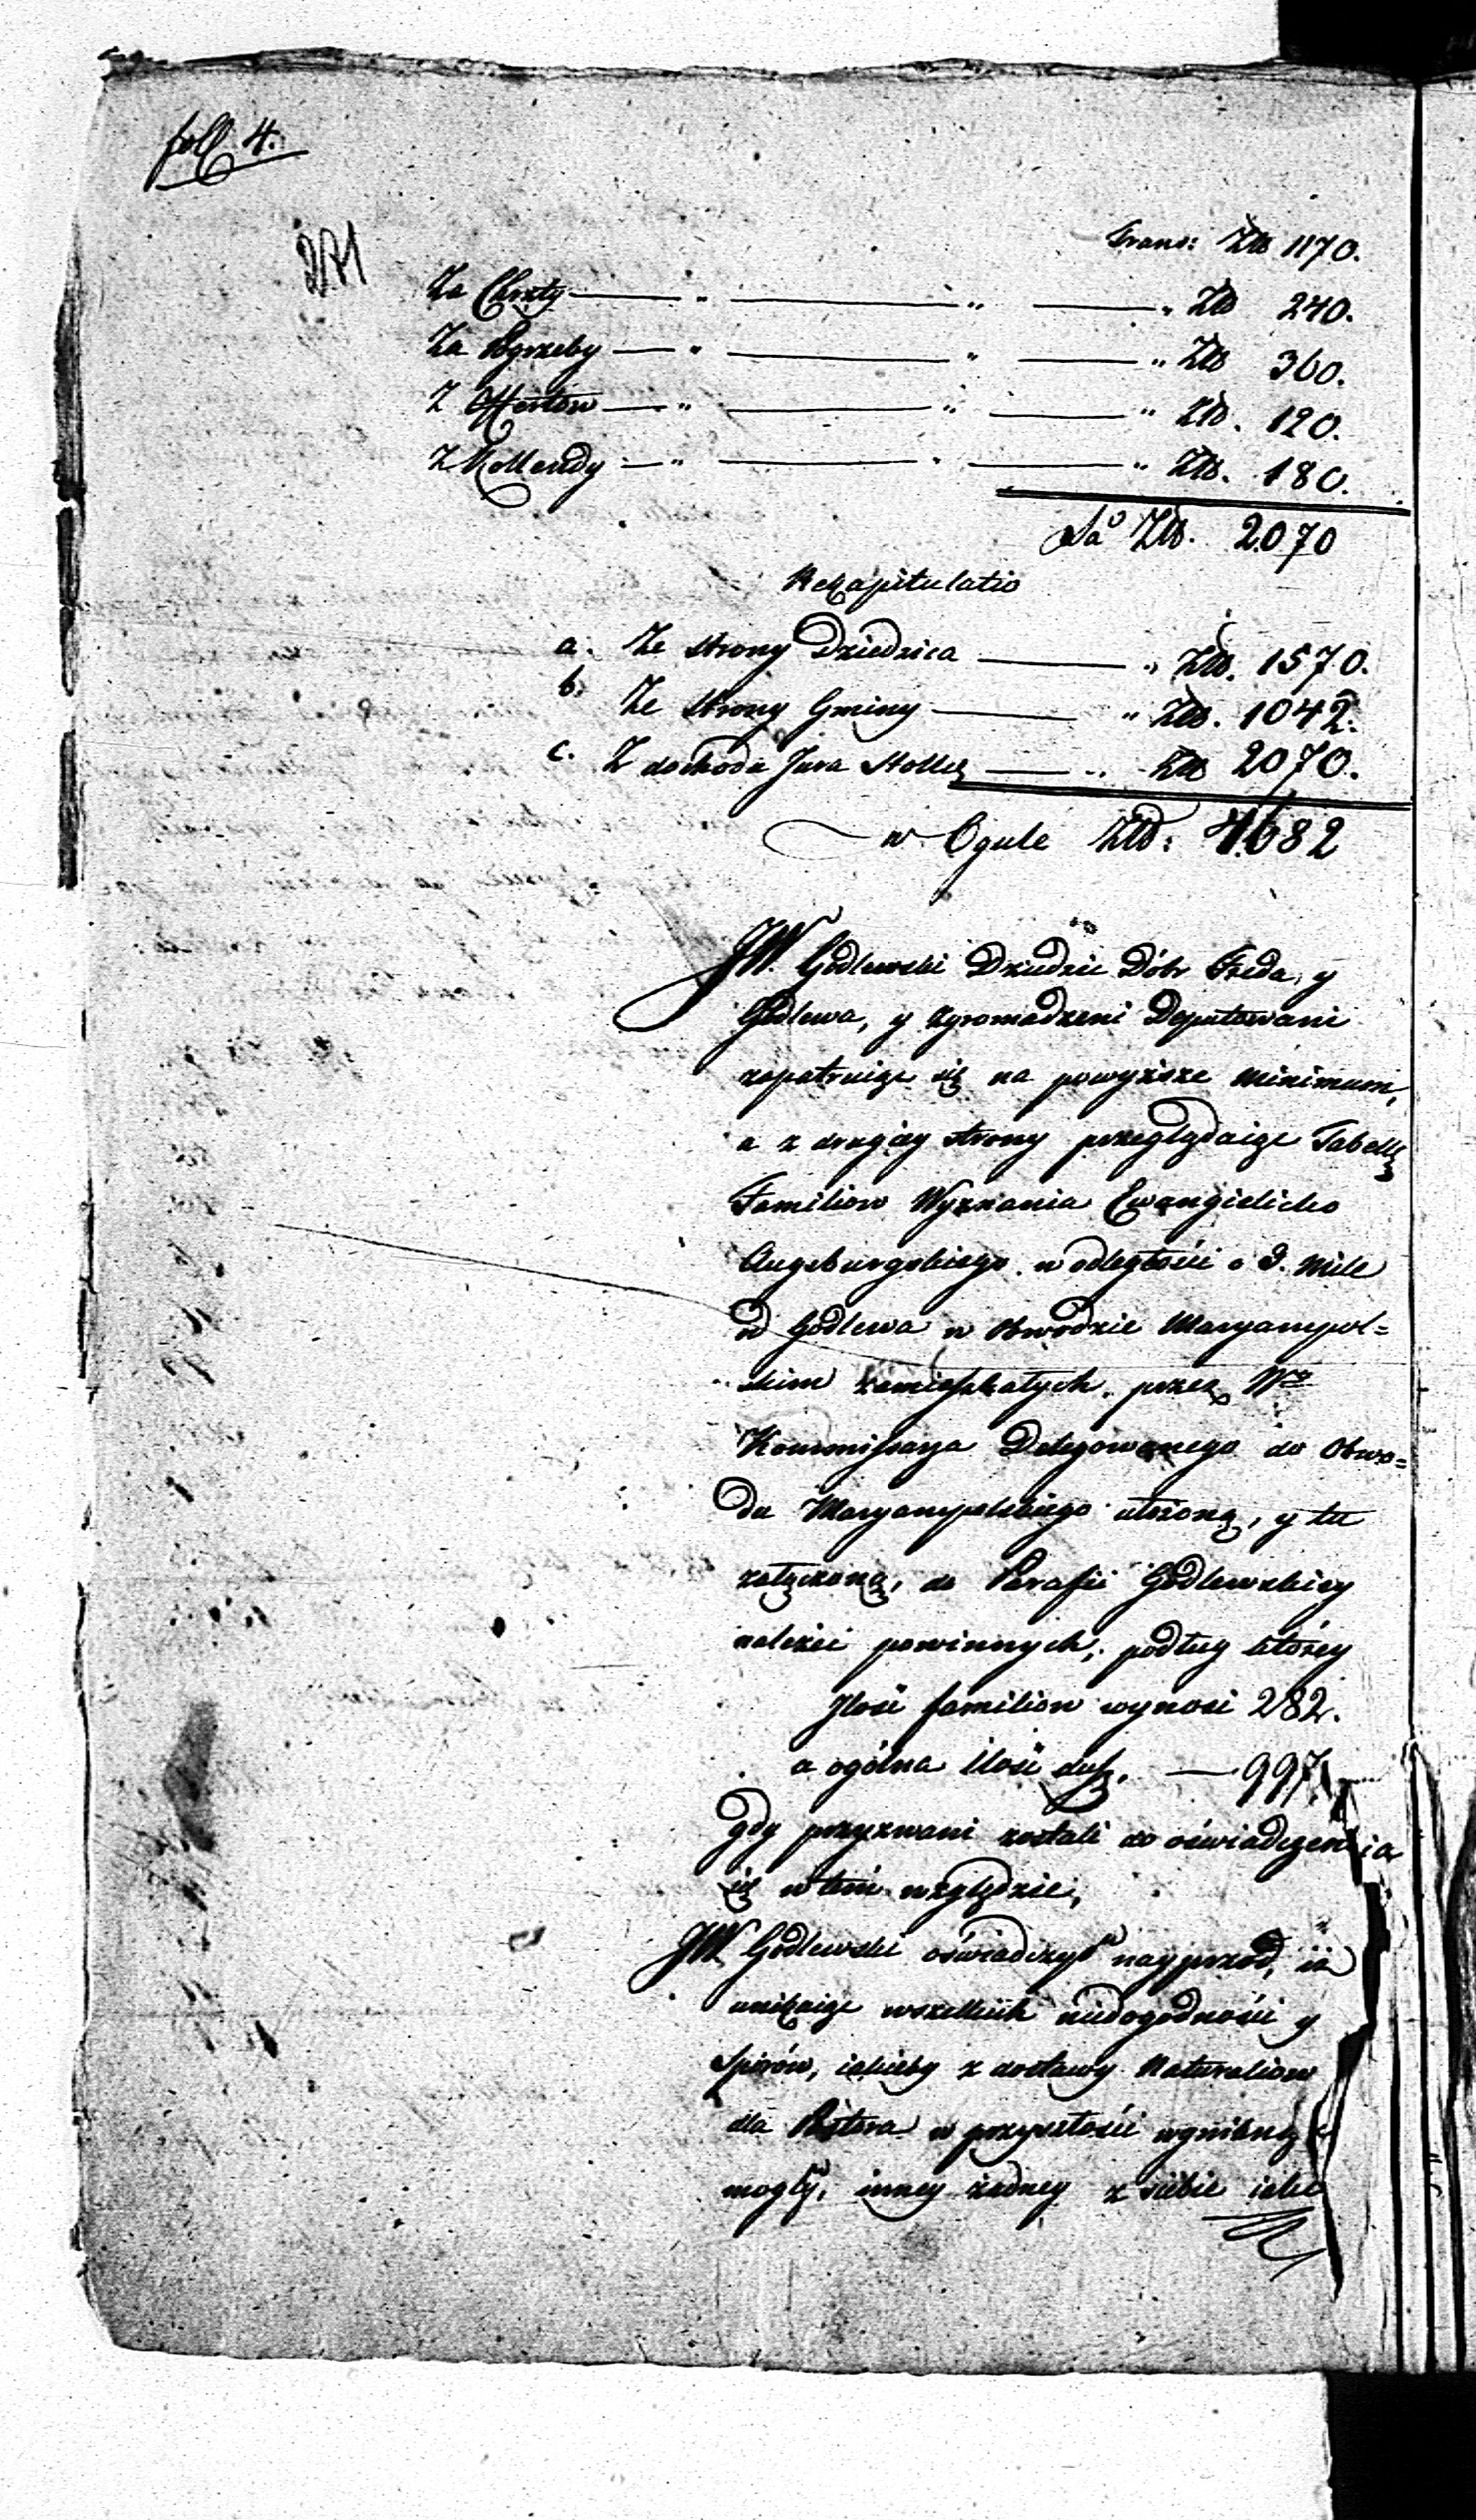 foll 4.
271
Trans: Złł 1170.
Za Chrzty — " — " — " Złł 240.
Za Pogrzeby — " — " — " Złł 360.
Z Offertów — " — " — " Złł. 120.
Z Kollendy — " — " — " Złł. 180.
Sa Złł. 2070
Rekapitulatio
a. Ze strony Dziedzica — " Złł. 1570.
b. Ze strony Gminy — " Złł. 1042.
c. Z dochodu Jura Stollę — " Złł 2070.
w Ogule Złł: 4682
JW. Godlewski Dziedzic Dóbr Freda, y
Godlewa, y zgromadzeni Deputowani
zapatruiąc się na powyższe minimum,
a z drugiey strony przeglądaiąc Tabellę
Familiow Wyznania Ewangielicko
Augsburgskiego w odległości o 3. Mile
od Godlewa w Obwodzie Maryampol=
skim zamieszkałych, przez Wo
Kommissarza Delegowanego do Obwo=
du Maryampolskiego ułożoną, y tu
załączoną, do Parafii Godlewskiey
należeć powinnych, podług którey
Ilość familiow wynosi 282.
a ogólna ilość dusz. — 997.
gdy przyzwani zostali do oświadczenia
się w tém względzie,
JW Godlewski oświadczył nayprzod, iż
unikaiąc wszelkich niedogodności y
Sporów, iakieby z dostawy Naturaliow
dla Pastora w przyszłości wyniknąć
mogły, inney żadney z siebie iak